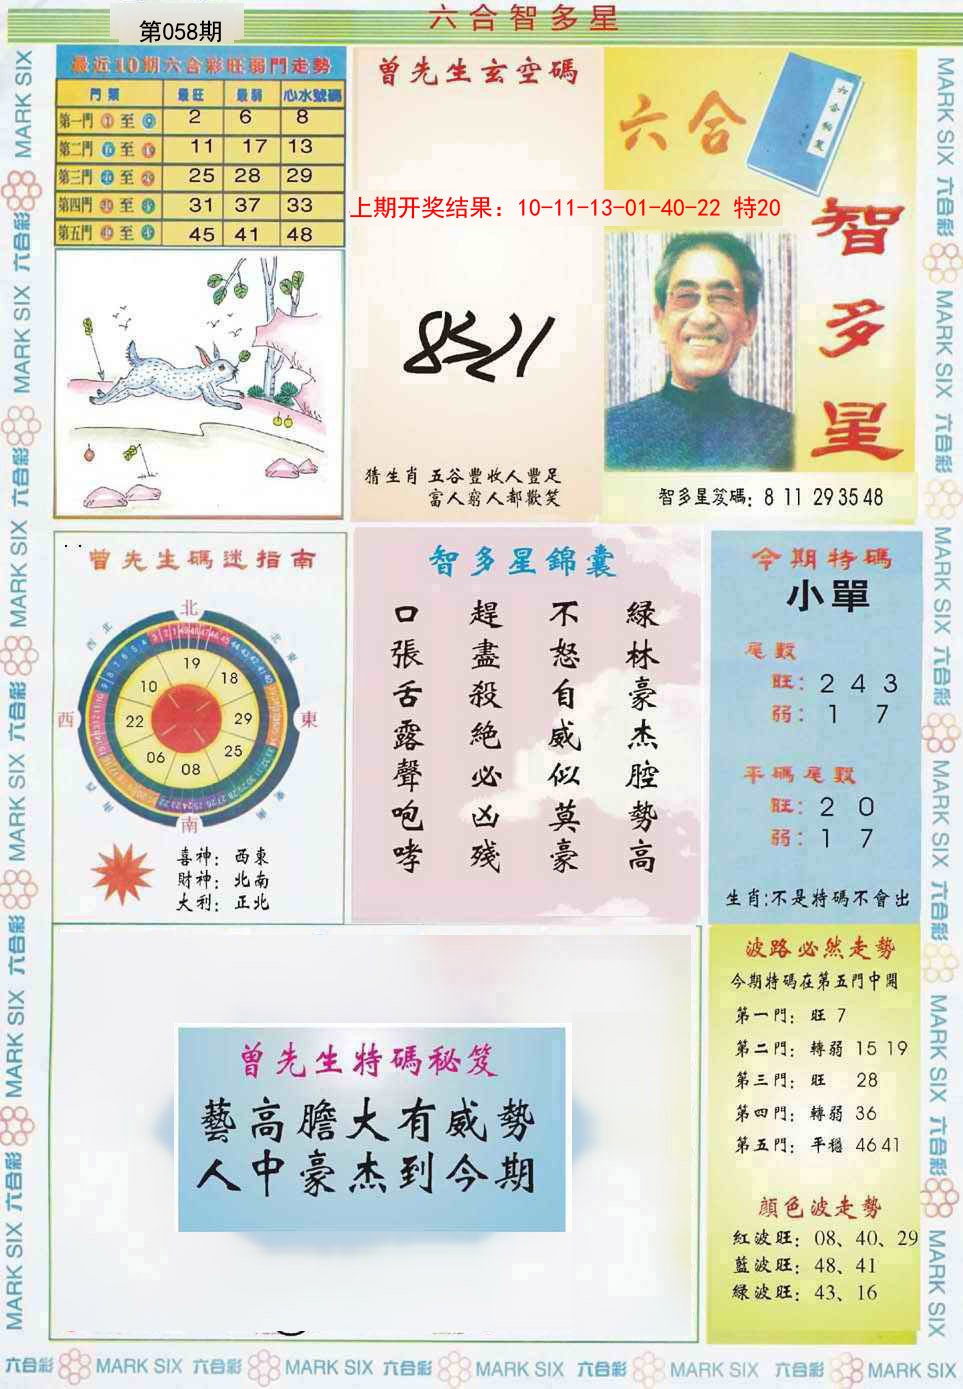 六合智多星
第058期
最近10期六合彩旺弱門走勢
門類 最旺 最弱 心水號碼
第一門 ① 至 2 6 8
第二門 至 11 17 13
第三門 至 25 28 29
第四門 至 31 37 33
第五門 至 45 41 48
曾先生玄空碼
上期开奖结果：10-11-13-01-40-22 特20
猜生肖 五谷豐收人豐足
富人窮人都歡笑
六合
智多星
智多星笈碼：8 11 29 35 48
曾先生碼迷指南
北
西北
北東
西
東
南
19
18
29
25
08
06
22
10
喜神：西東
財神：北南
大利：正北
智多星錦囊
綠林豪杰腔勢高
不怒自威似莫豪
趕盡殺絕必凶殘
口張舌露聲咆哮
今期特碼
小單
尾數
旺：2 4 3
弱：1 7
平碼尾數
旺：2 0
弱：1 7
生肖：不是特碼不會出
曾先生特碼秘笈
藝高膽大有威勢
人中豪杰到今期
波路必然走勢
今期特碼在第五門中開
第一門：旺 7
第二門：轉弱 15 19
第三門：旺 28
第四門：轉弱 36
第五門：平穩 46 41
顏色波走勢
紅波旺：08、40、29
藍波旺：48、41
綠波旺：43、16
MARK SIX 六合彩 MARK SIX 六合彩 MARK SIX 六合彩 MARK SIX 六合彩 MARK SIX 六合彩 MARK SIX
MARK SIX 六合彩 MARK SIX 六合彩 MARK SIX 六合彩 MARK SIX 六合彩 MARK SIX 六合彩 MARK SIX
六合彩 MARK SIX 六合彩 MARK SIX 六合彩 MARK SIX 六合彩 MARK SIX 六合彩 MARK SIX